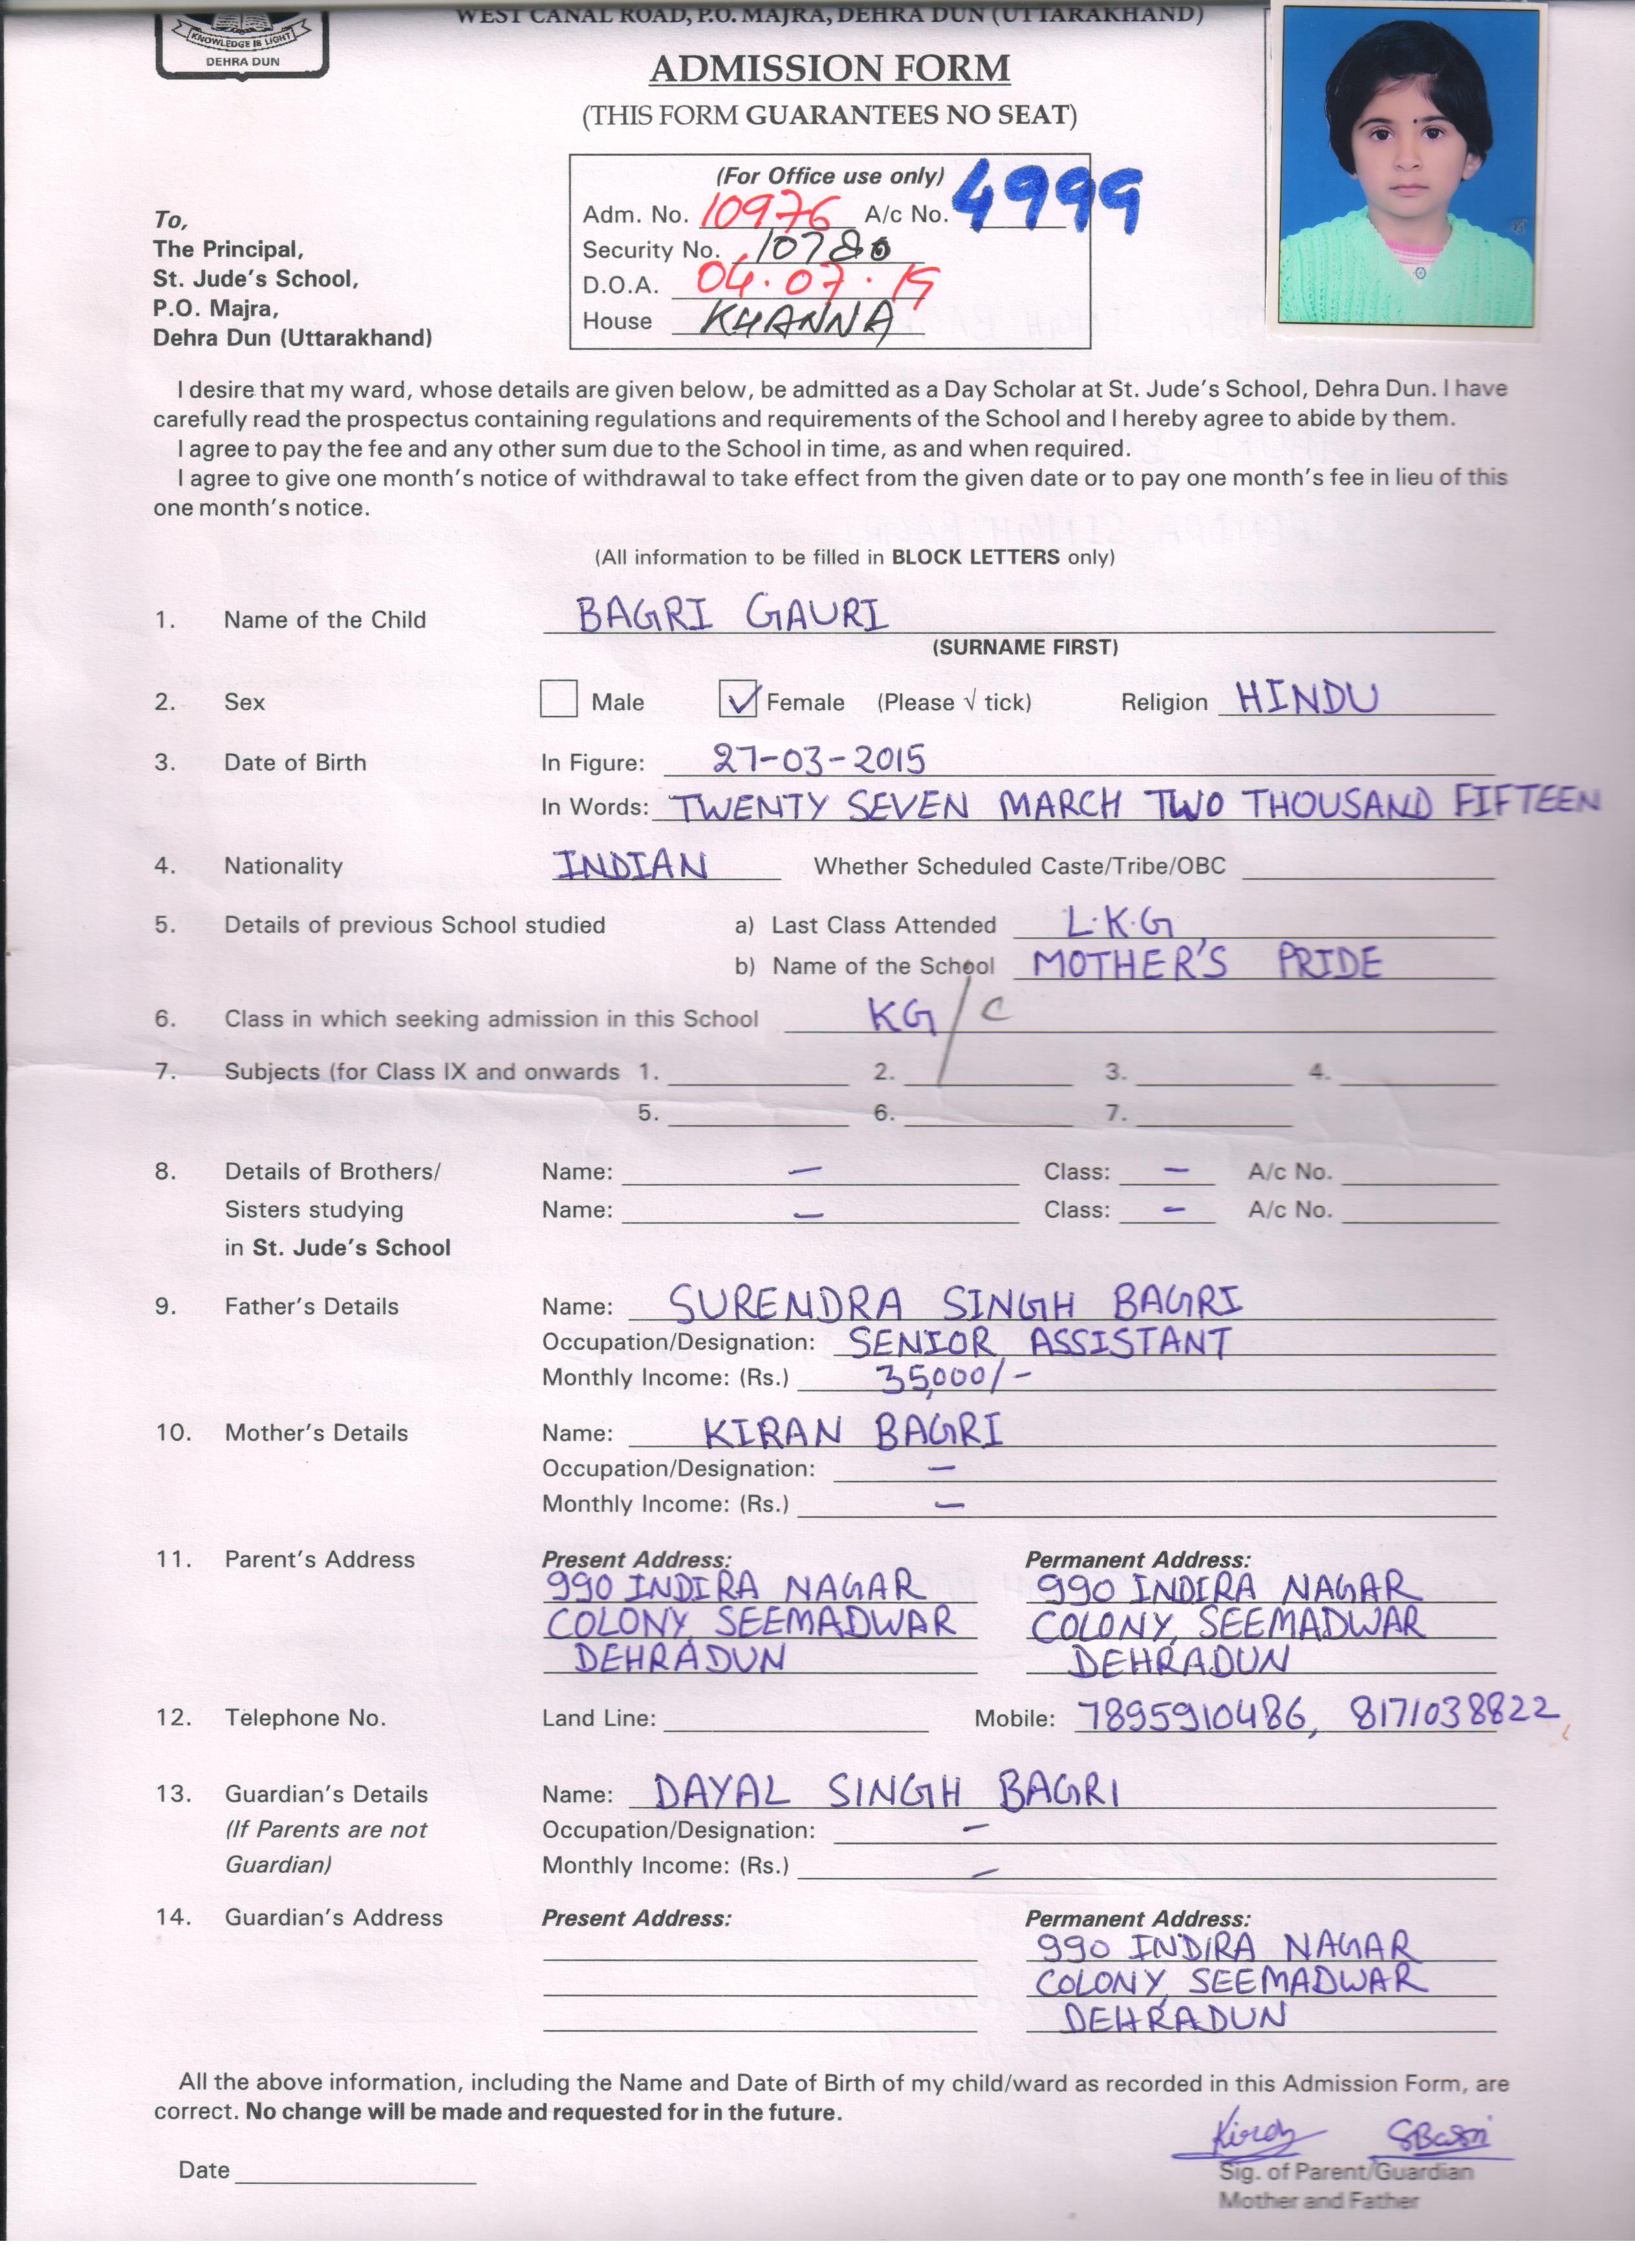 WEST CANAL ROAD, P.O. MAJRA, DEHRA DUN (UTTARAKHAND)
KNOWLEDGE IS LIGHT
DEHRA DUN
ADMISSION FORM
(THIS FORM GUARANTEES NO SEAT)
(For Office use only)
Adm. No. 10976 A/c No. 4999
Security No. 10780
D.O.A. 04.07.19
House KHANNA
To,
The Principal,
St. Jude's School,
P.O. Majra,
Dehra Dun (Uttarakhand)
I desire that my ward, whose details are given below, be admitted as a Day Scholar at St. Jude's School, Dehra Dun. I have
carefully read the prospectus containing regulations and requirements of the School and I hereby agree to abide by them.
I agree to pay the fee and any other sum due to the School in time, as and when required.
I agree to give one month's notice of withdrawal to take effect from the given date or to pay one month's fee in lieu of this
one month's notice.
(All information to be filled in BLOCK LETTERS only)
1. Name of the Child BAGRI GAURI
(SURNAME FIRST)
2. Sex Male ✓ Female (Please √ tick) Religion HINDU
3. Date of Birth In Figure: 27-03-2015
In Words: TWENTY SEVEN MARCH TWO THOUSAND FIFTEEN
4. Nationality INDIAN Whether Scheduled Caste/Tribe/OBC
5. Details of previous School studied a) Last Class Attended L.K.G
b) Name of the School MOTHER'S PRIDE
6. Class in which seeking admission in this School KG/C
7. Subjects (for Class IX and onwards 1. 2. 3. 4.
5. 6. 7.
8. Details of Brothers/ Name: – Class: – A/c No.
Sisters studying Name: – Class: – A/c No.
in St. Jude's School
9. Father's Details Name: SURENDRA SINGH BAGRI
Occupation/Designation: SENIOR ASSISTANT
Monthly Income: (Rs.) 35,000/-
10. Mother's Details Name: KIRAN BAGRI
Occupation/Designation: –
Monthly Income: (Rs.) –
11. Parent's Address Present Address: Permanent Address:
990 INDIRA NAGAR 990 INDIRA NAGAR
COLONY, SEEMADWAR COLONY, SEEMADWAR
DEHRADUN DEHRADUN
12. Telephone No. Land Line: Mobile: 7895910486, 8171038822
13. Guardian's Details Name: DAYAL SINGH BAGRI
(If Parents are not Occupation/Designation: –
Guardian) Monthly Income: (Rs.) –
14. Guardian's Address Present Address: Permanent Address:
990 INDIRA NAGAR
COLONY, SEEMADWAR
DEHRADUN
All the above information, including the Name and Date of Birth of my child/ward as recorded in this Admission Form, are
correct. No change will be made and requested for in the future.
Date
Sig. of Parent/Guardian
Mother and Father